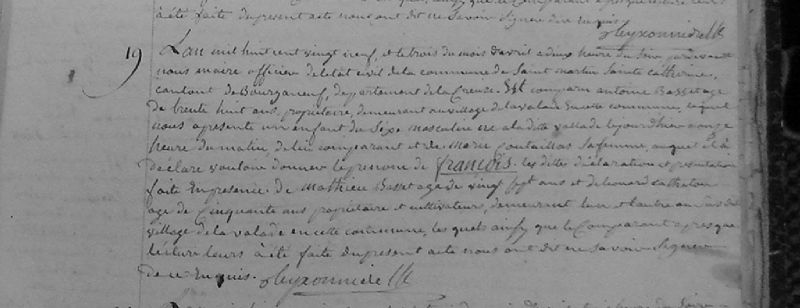 à été faite du présent acte nous ont dit ne savoir signer de ce Enquis
Leyxonnie dell
19 Lan mil huit cent vingt neuf et le trois du mois d'avril a deux heure du Soir pardevant
nous maire officier de l'état civil de la commune de Saint martin Sainte Catherine,
canton de Bourganeuf, departement de la Creuse. Est comparu antoine Basset age
de trente huit ans, propriétaire, demeurant au village de la valade En cette commune, lequel
nous a présenté un enfant du Sexe masculin né a la ditte vallade le jourdhier a onze
heure du matin, de lui comparant et de Marie Sa femme, auquel il à
déclaré vouloir donner le prenom de francois. les dittes déclaration et presentation
faite En presence de Mathieu Basset age de vingt sept ans et de leonard
age de Cinquante ans propriétaire et cultivateurs, demeurant lun et lautre au dit
village de la valade en cette commune, les quels ainsy que le Comparant apres que
lecture leurs à été faite du present acte nous ont dit ne Savoir Signer
de ce Enquis. Leyxonnie dell